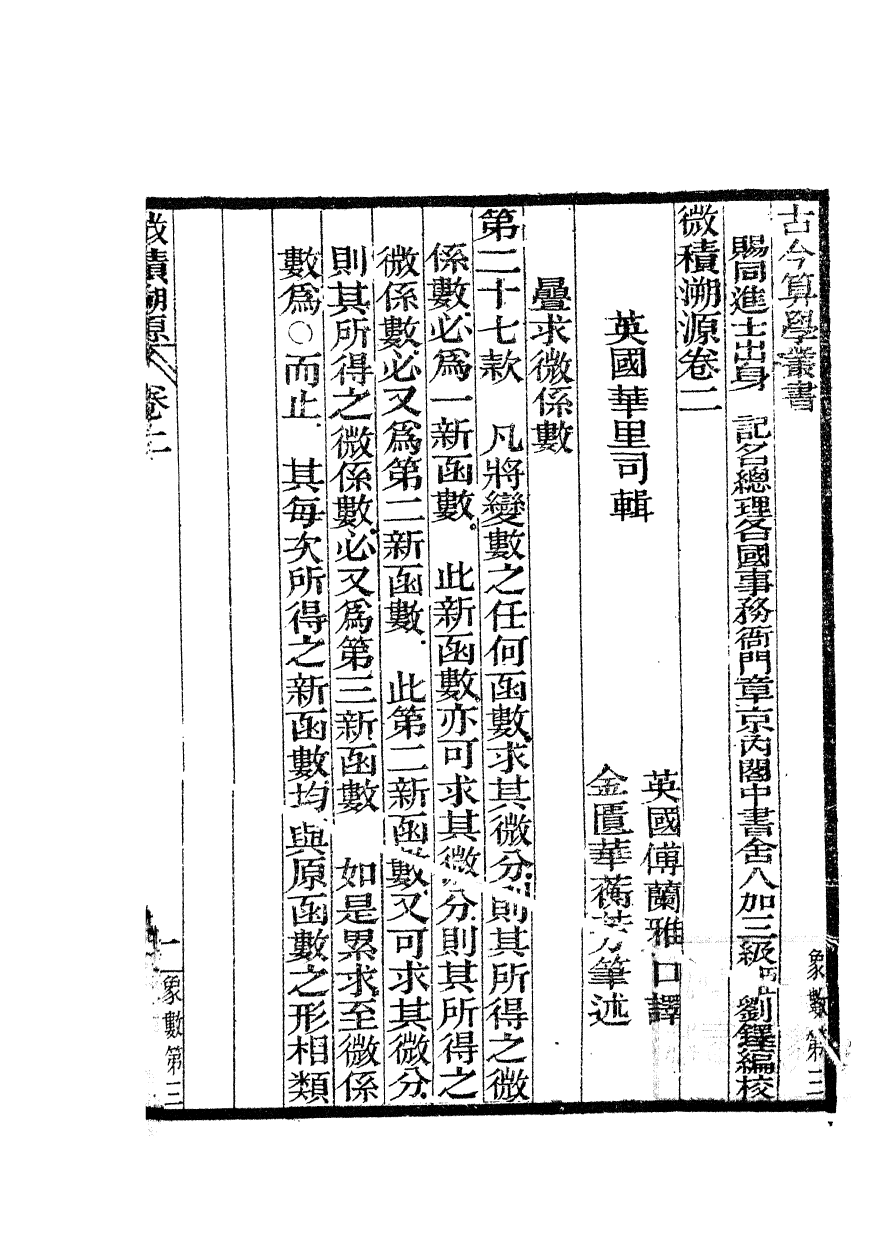 古今算學叢書
象數第三
賜同進士出身 記名總理各國事務衙門章京內閣中書舍人加三級 劉鐸編校
微積溯源卷二
英國傅蘭雅口譯
英國華里司輯
金匱華蘅芳筆述
疊求微係數
第二十七款 凡將變數之任何函數求其微分則其所得之微
係數必爲一新函數。 此新函數亦可求其微分則其所得之
微係數必又爲第二新函數. 此第二新函數又可求其微分.
則其所得之微係數必又爲第三新函數 如是累求至微係
數爲○而止. 其每次所得之新函數均與原函數之形相類
微積溯源 卷二
一 象數第三